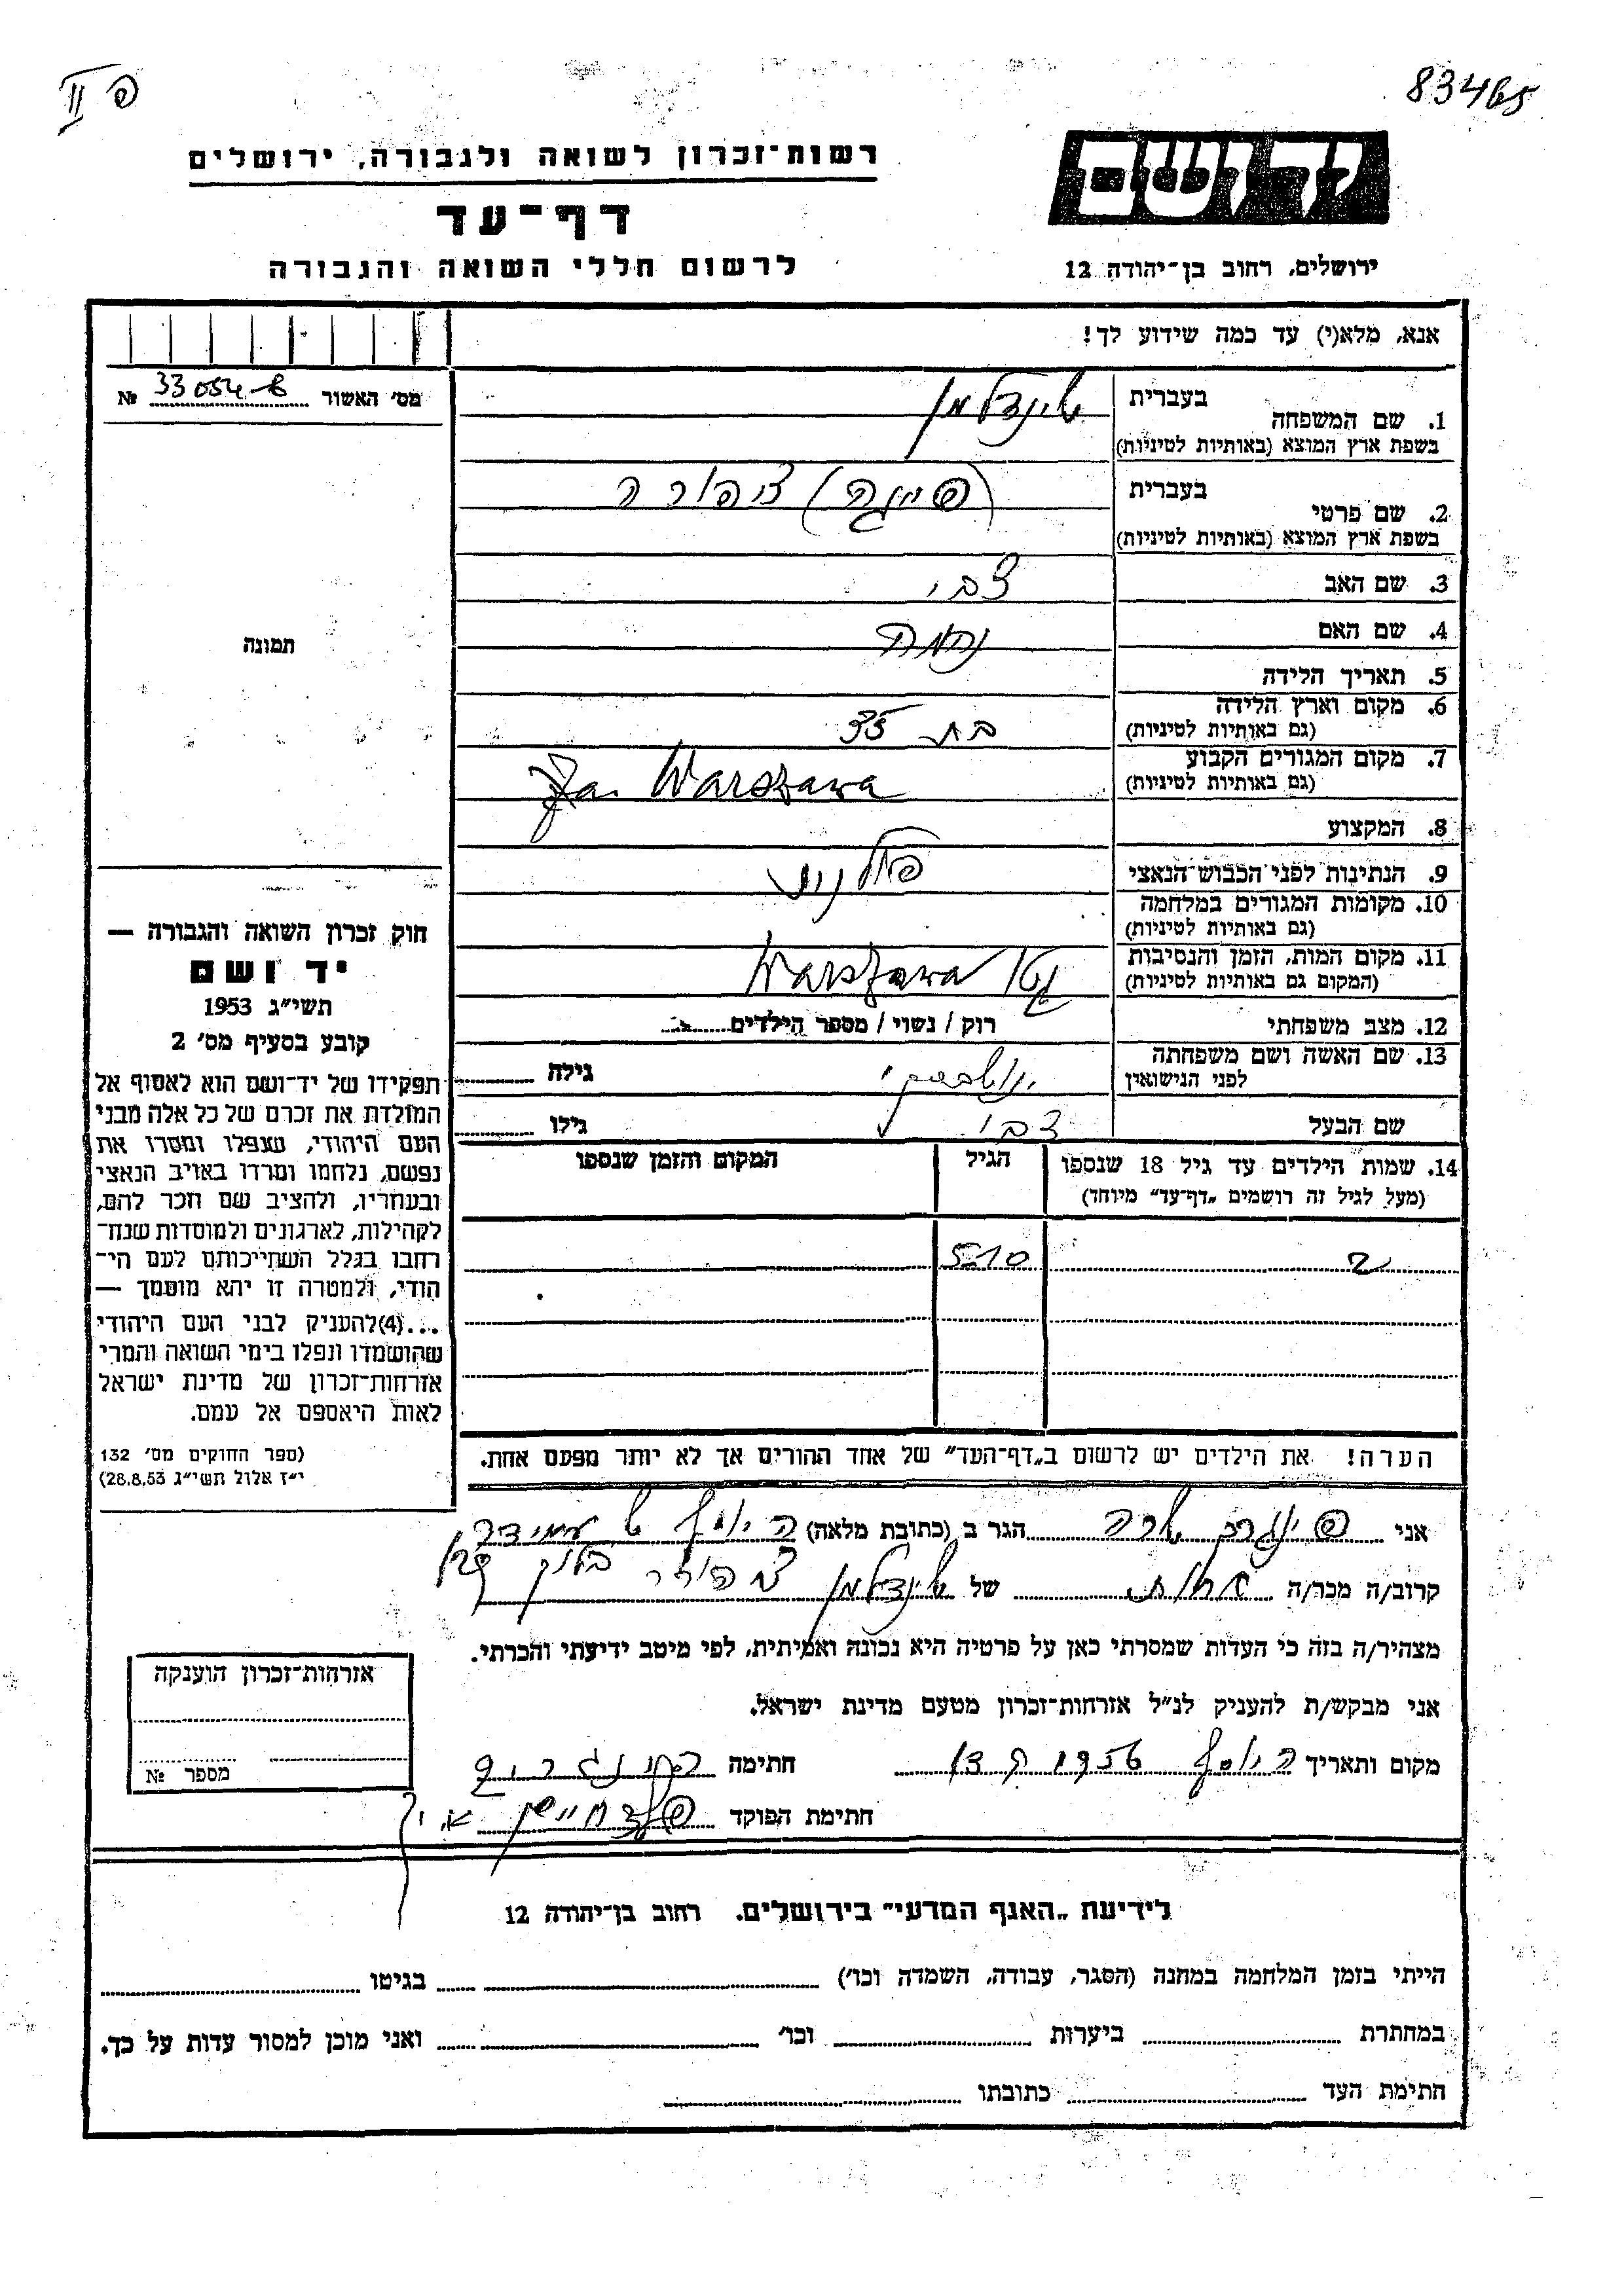 פ II
83465
רשות־זכרון לשואה ולגבורה, ירושלים
דף־עד
לרשום חללי השואה והגבורה
ידושם
ירושלים, רחוב בן־יהודה 12
אנא, מלא(י) עד כמה שידוע לך!
מס׳ האשור 33054-6 №
תמונה
1. שם המשפחה
בעברית שינדלמן
בשפת ארץ המוצא (באותיות לטיניות)
2. שם פרטי
בעברית (פייגה) ציפורה
בשפת ארץ המוצא (באותיות לטיניות)
3. שם האב צבי
4. שם האם נחמה
5. תאריך הלידה
6. מקום וארץ הלידה
(גם באותיות לטיניות) בת 35
7. מקום המגורים הקבוע
(גם באותיות לטיניות) Warszawa
8. המקצוע
9. הנתינות לפני הכבוש־הנאצי פולנית
10. מקומות המגורים במלחמה
(גם באותיות לטיניות)
11. מקום המות, הזמן והנסיבות
(המקום גם באותיות לטיניות) גטו Warszawa
12. מצב משפחתי רוק / נשוי / מספר הילדים
13. שם האשה ושם משפחתה
לפני הנישואין גילה
שם הבעל צבי גילו
14. שמות הילדים עד גיל 18 שנספו הגיל המקום והזמן שנספו
(מעל לגיל זה רושמים „דף־עד״ מיוחד)
2 5-10
הערה! את הילדים יש לרשום ב„דף־העד״ של אחד ההורים אך לא יותר מפעם אחת.
חוק זכרון השואה והגבורה —
יד ושם
תשי״ג 1953
קובע בסעיף מס׳ 2
תפקידו של יד־ושם הוא לאסוף אל
המולדת את זכרם של כל אלה מבני
העם היהודי, שנפלו ומסרו את
נפשם, נלחמו ומרדו באויב הנאצי
ובעוזריו, ולהציב שם וזכר להם,
לקהילות, לארגונים ולמוסדות שנח־
רבו בגלל השתייכותם לעם הי־
הודי, ולמטרה זו יהא מוסמך —
...(4)להעניק לבני העם היהודי
שהושמדו ונפלו בימי השואה והמרי
אזרחות־זכרון של מדינת ישראל
לאות היאספם אל עמם.
(ספר החוקים מס׳ 132
י״ז אלול תשי״ג 28.8.53)
אני שרה הגר ב (כתובת מלאה)
קרוב/ה מכר/ה אחות של שינדלמן
מצהיר/ה בזה כי העדות שמסרתי כאן על פרטיה היא נכונה ואמיתית, לפי מיטב ידיעתי והכרתי.
אני מבקש/ת להעניק לנ״ל אזרחות־זכרון מטעם מדינת ישראל.
מקום ותאריך 1956 חתימה
חתימת הפוקד
אזרחות־זכרון הוענקה
מספר №
לידיעת „האגף המדעי״ בירושלים. רחוב בן־יהודה 12
הייתי בזמן המלחמה במחנה (הסגר, עבודה, השמדה וכו׳) בגיטו
במחתרת ביערות וכו׳ ואני מוכן למסור עדות על כך.
חתימת העד כתובתו